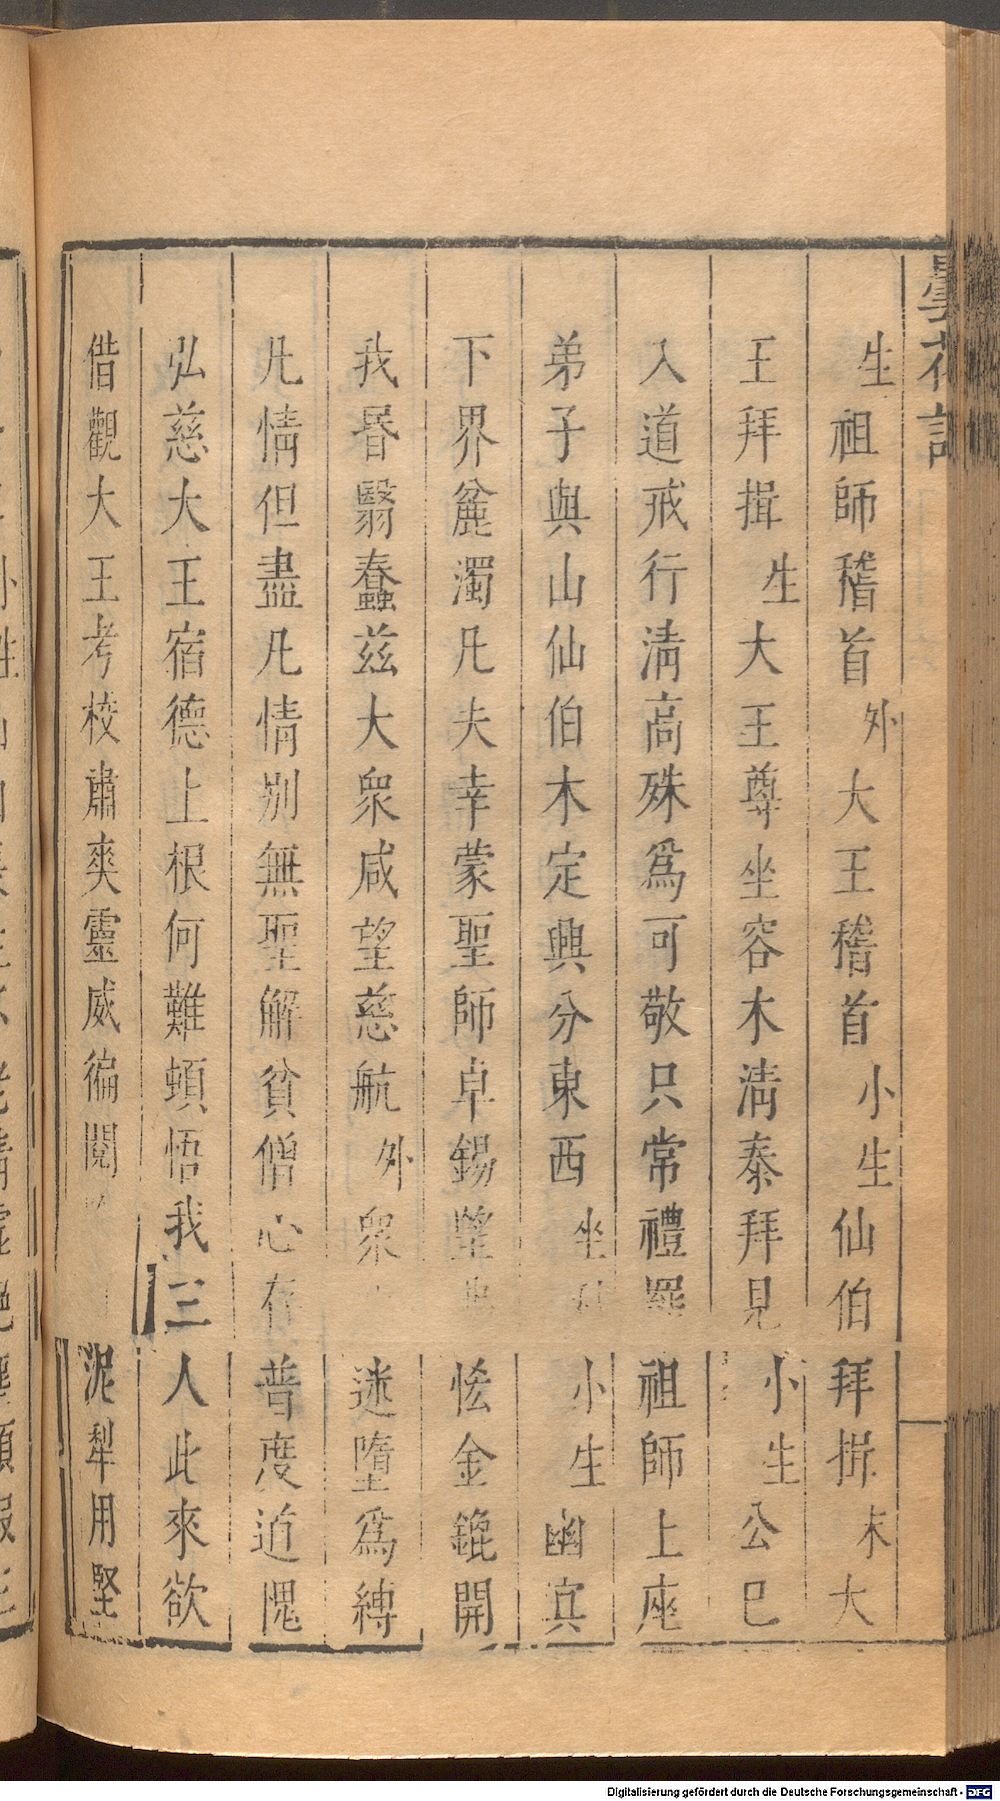 曇花記
生祖師稽首外大王稽首小生仙伯拜揖末大
王拜揖生大王尊坐容木清泰拜見小生公已
入道戒行清高殊爲可敬只常禮罷祖師上座
弟子與山仙伯木定興分東西坐小生幽冥
下界麄濁凡夫幸蒙聖師卓錫望恡金鎞開
我昏翳蠢茲大衆咸望慈航外衆迷墮爲縛
凡情但盡凡情別無聖解貧僧心存普度迹愧
弘慈大王宿德上根何難頓悟我三人此來欲
借觀大王考校肅爽靈威徧閱泥犁用堅
Digitalisierung gefördert durch die Deutsche Forschungsgemeinschaft - DFG